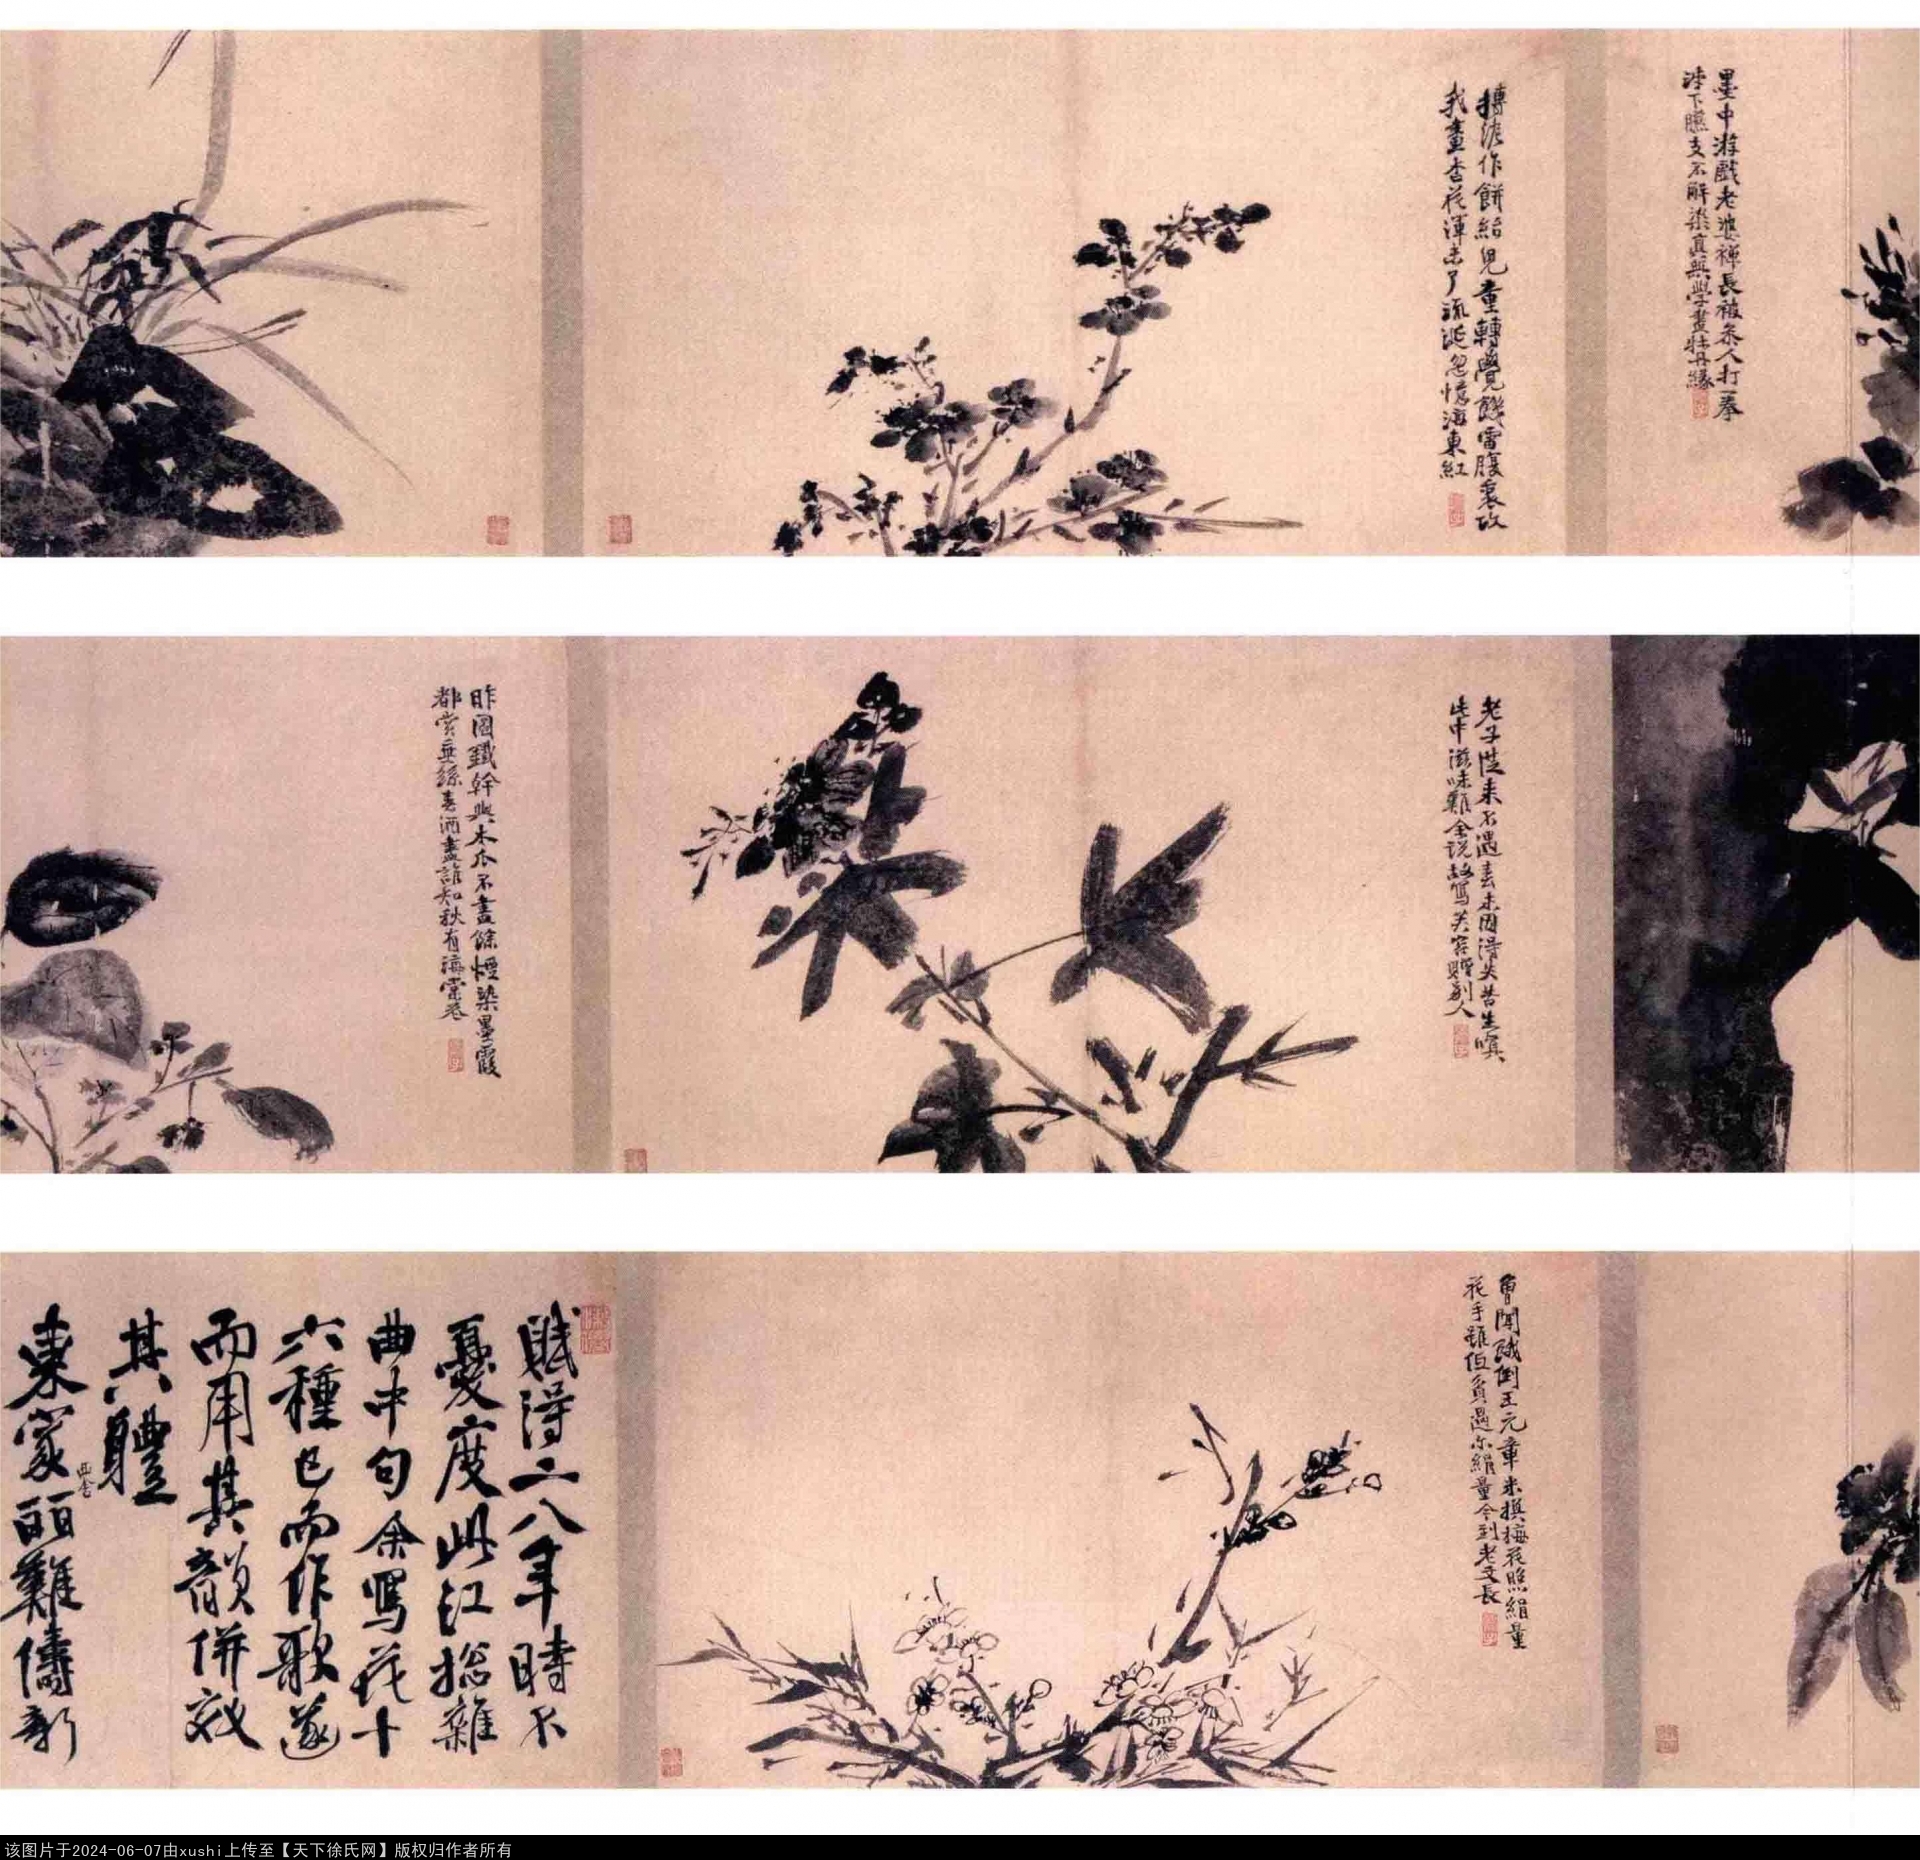 墨中游戲老婆禪長被參人打一拳
涕下臙支不解染真無學畫牡丹緣
摶泥作餅紿兒童轉覺饑雷腹裏攻
我畫杏花渾未了流涎忽憶海東紅
老子從來不遇春未因得失苦生嗔
此中滋味難全說故寫芙蓉贈別人
昨圖鐵幹與木瓜不盡餘煙染墨霞
都賞垂絲春酒盡誰知秋有海棠花
曾聞餓倒王元章米換梅花照絹量
花手雖低貧過尓絹量今到老文長
賦得二八年時不
憂度此江總雜
曲中句余寫花十
六種已而作歌遂
而用其韻併效
其體
東家西舍麗難儔新
该图片于2024-06-07由xushi上传至【天下徐氏网】版权归作者所有